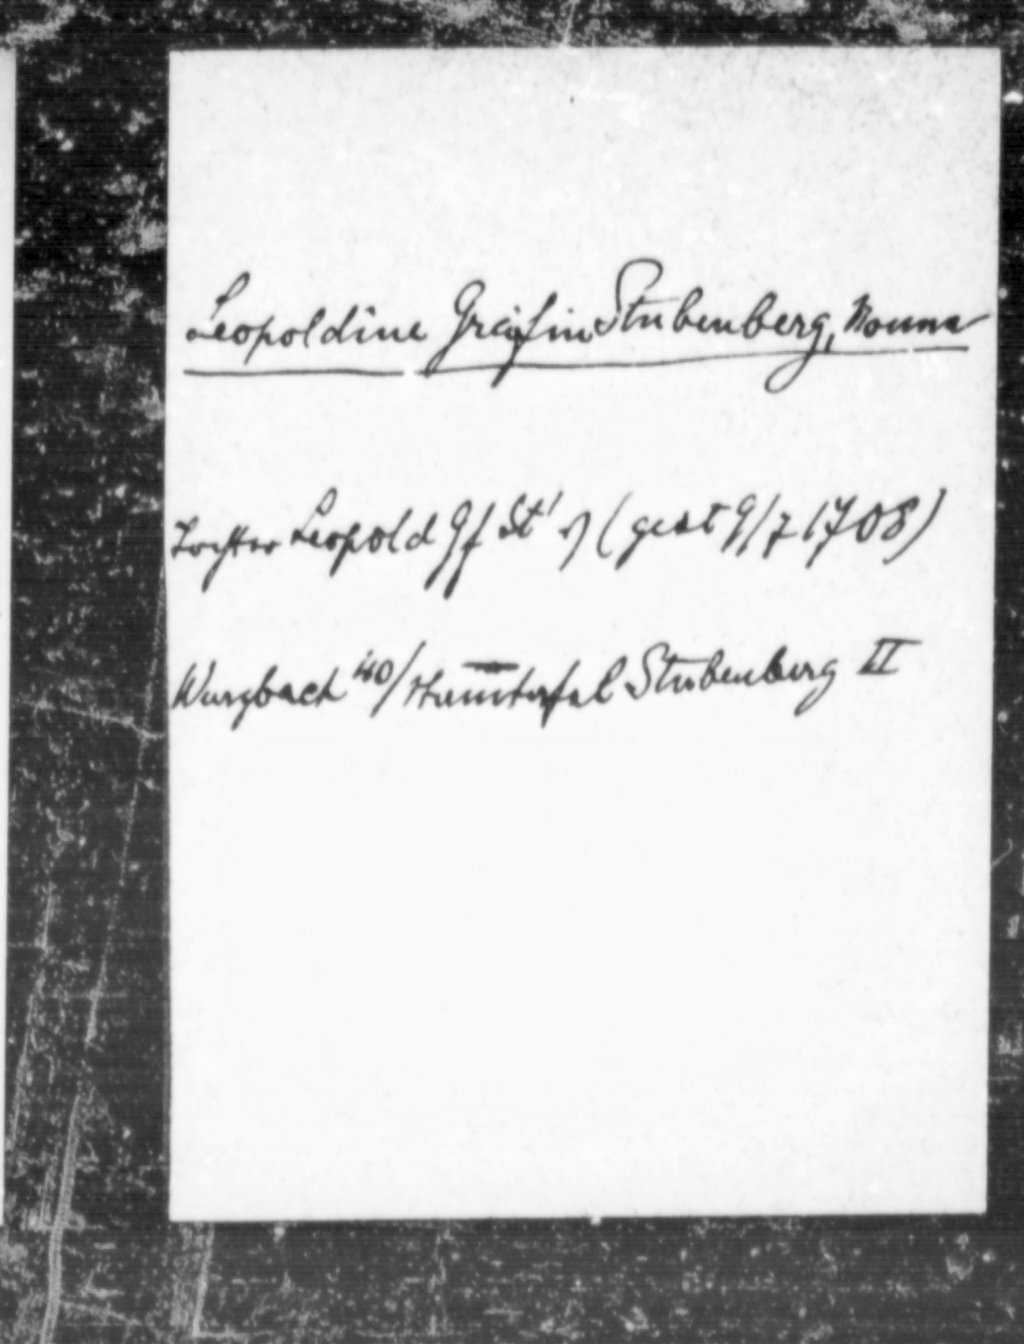 Leopoldine Gräfin Stubenberg, Nonne
Tochter Leopold Gf St' s (gest 9/7 1708)
Wurzbach 40/ Stammtafel Stubenberg II